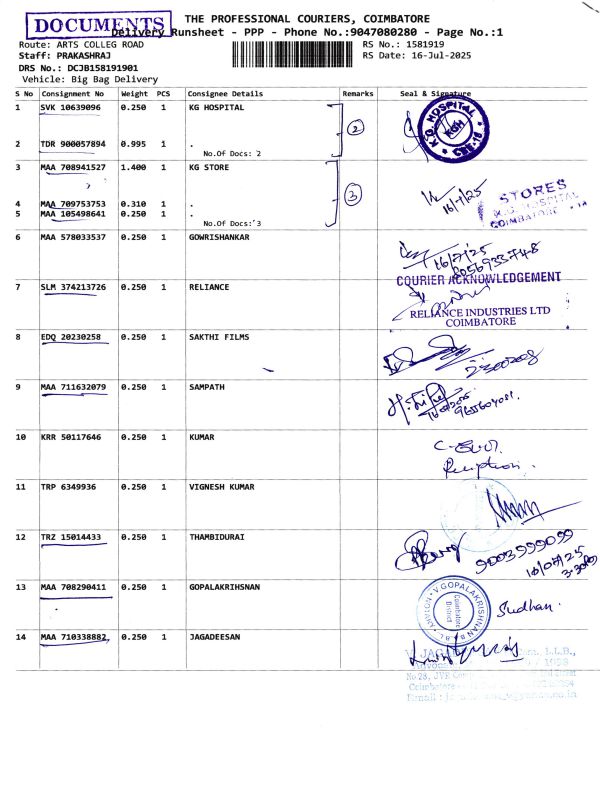 DOCUMENTS
THE PROFESSIONAL COURIERS, COIMBATORE
Delivery Runsheet - PPP - Phone No.:9047080280 - Page No.:1
Route: ARTS COLLEG ROAD RS No.: 1581919
Staff: PRAKASHRAJ RS Date: 16-Jul-2025
DRS No.: DCJB158191901
Vehicle: Big Bag Delivery
S No Consignment No Weight PCS Consignee Details Remarks Seal & Signature
1 SVK 10639096 0.250 1 KG HOSPITAL
K.G. HOSPITAL
KGH
2
2 TDR 900057894 0.995 1 .
No.Of Docs: 2
3 MAA 708941527 1.400 1 KG STORE
3
16/7/25
STORES
K.G. HOSPITAL
COIMBATORE
4 MAA 709753753 0.310 1 .
5 MAA 105498641 0.250 1 .
No.Of Docs: 3
6 MAA 578033537 0.250 1 GOWRISHANKAR
16/7/25
COURIER ACKNOWLEDGEMENT
7 SLM 374213726 0.250 1 RELIANCE
RELIANCE INDUSTRIES LTD
COIMBATORE
8 EDQ 20230258 0.250 1 SAKTHI FILMS
9 MAA 711632079 0.250 1 SAMPATH
10 KRR 50117646 0.250 1 KUMAR
Reception.
11 TRP 6349936 0.250 1 VIGNESH KUMAR
12 TRZ 15014433 0.250 1 THAMBIDURAI
9003999099
16/07/25
3.30
13 MAA 708290411 0.250 1 GOPALAKRIHSNAN
V.GOPALAKRISHNAN
Coimbatore
District
Sudhan.
14 MAA 710338882 0.250 1 JAGADEESAN